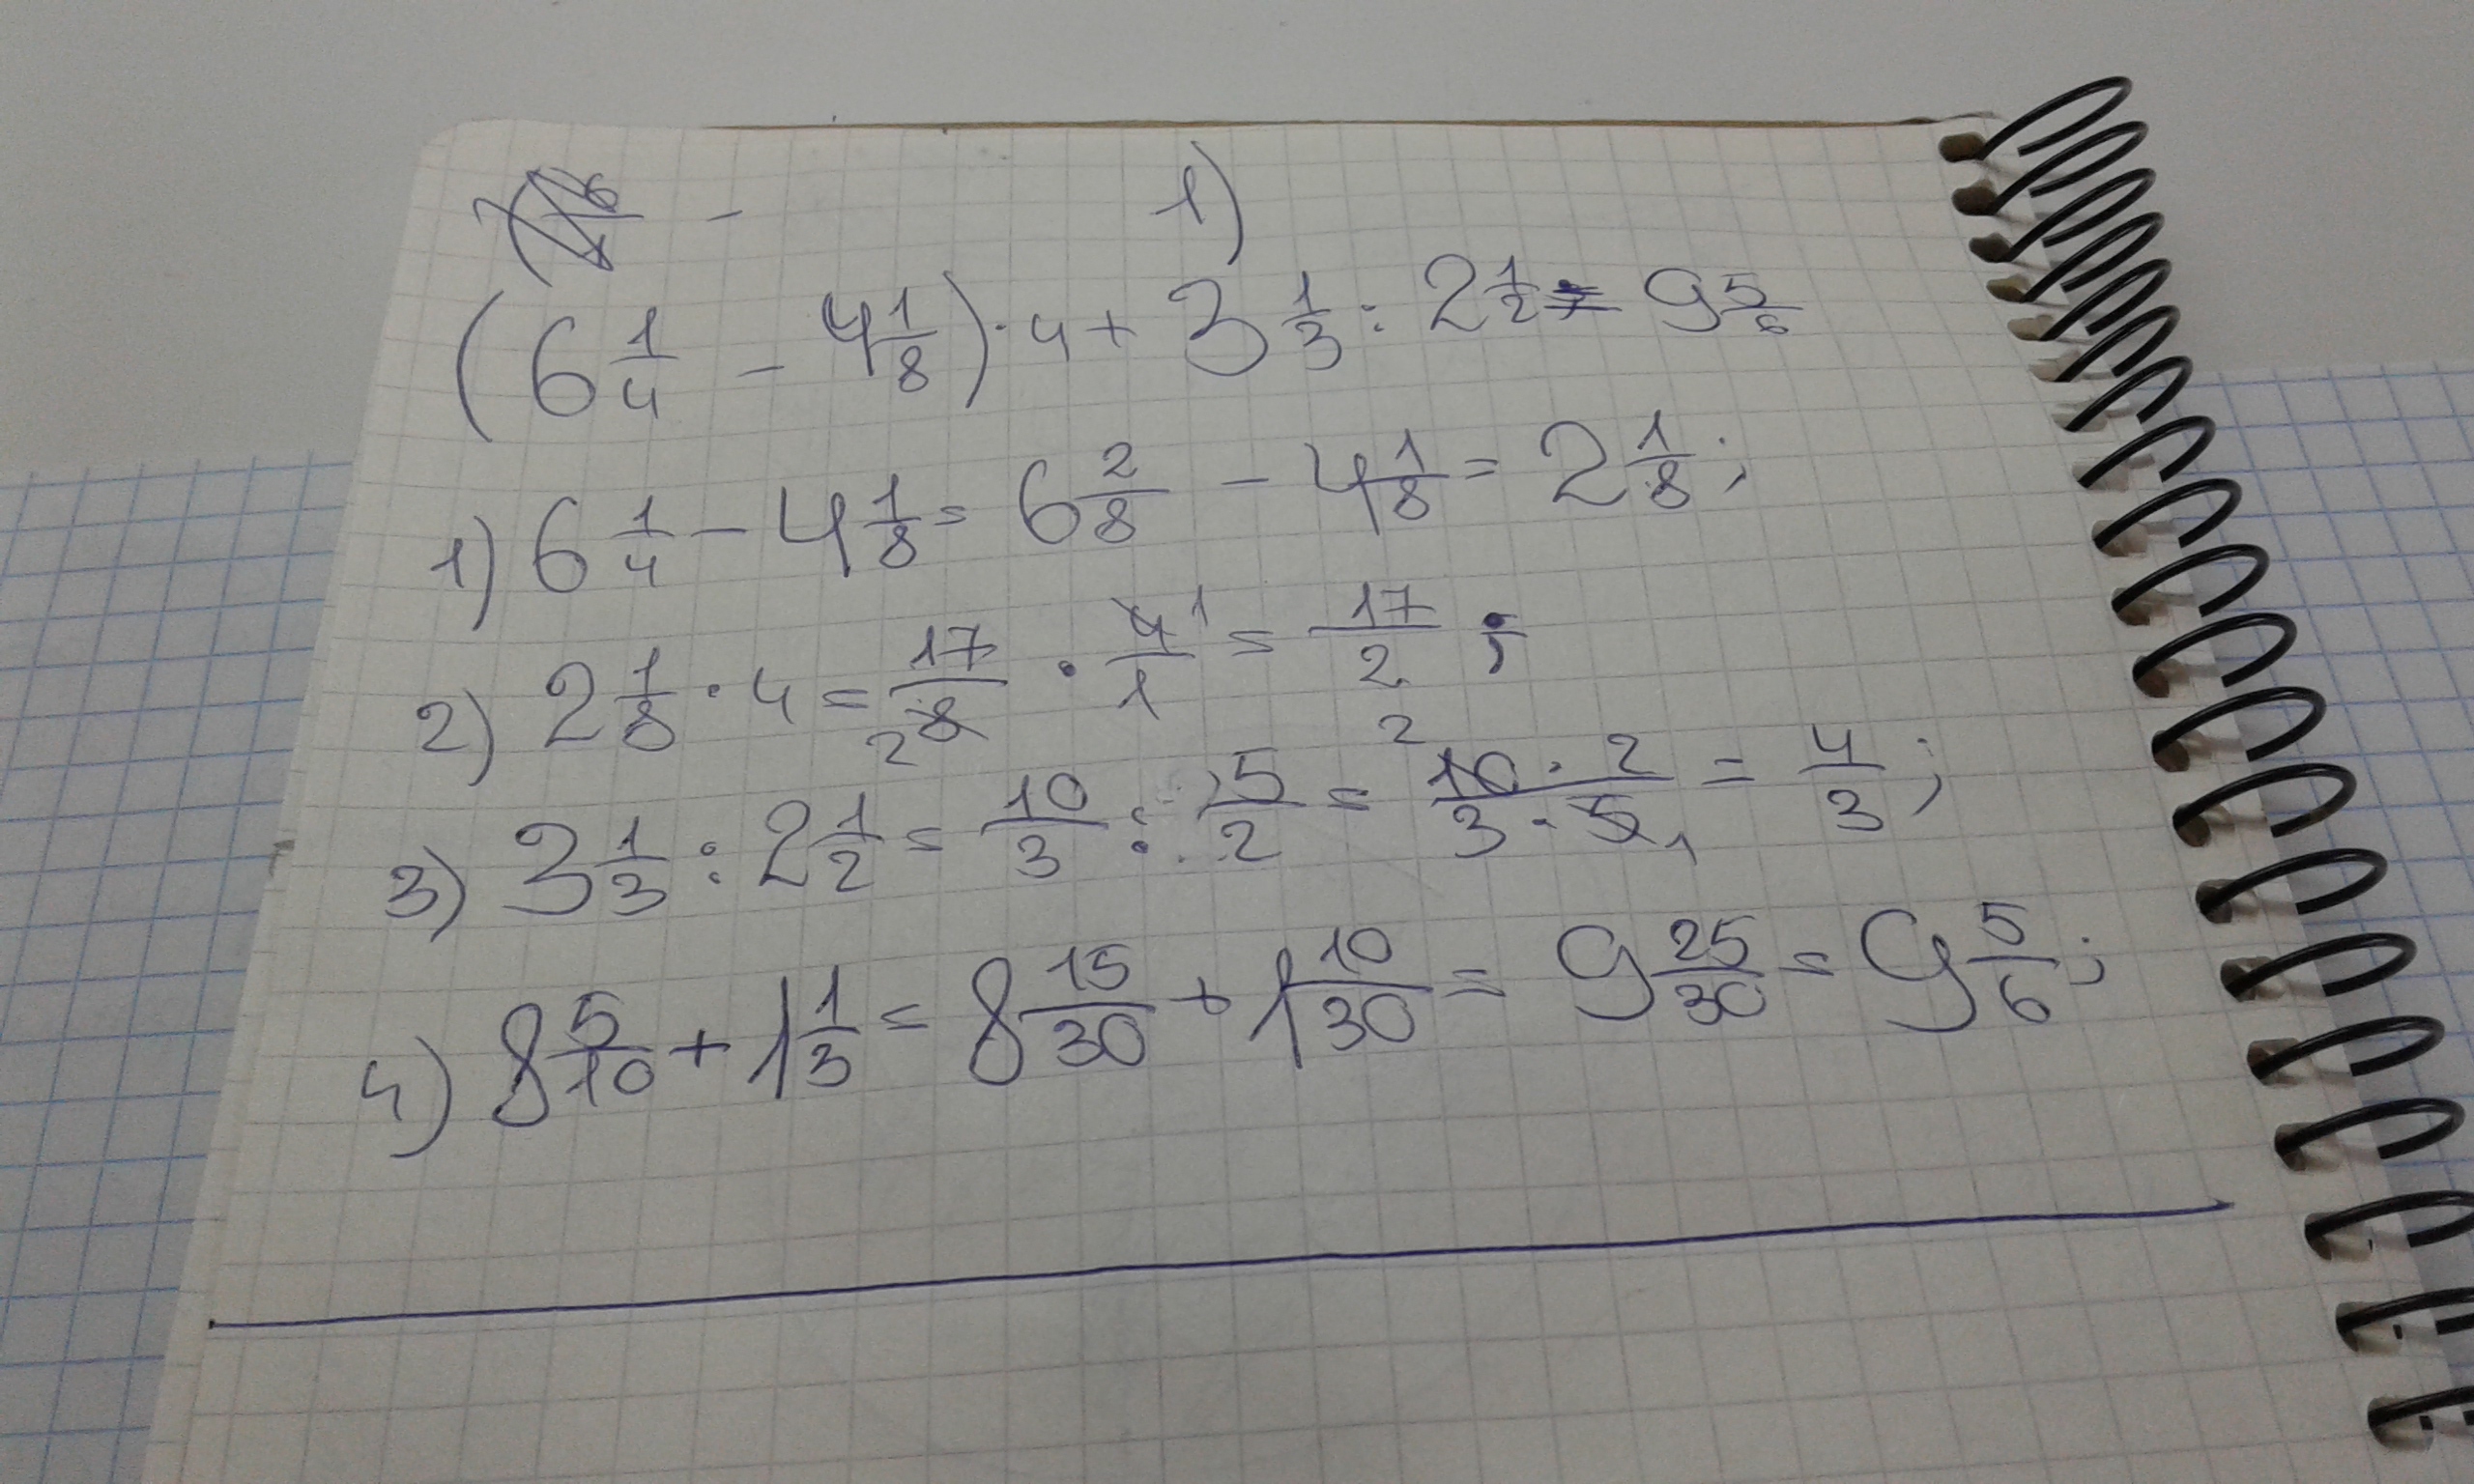 1)
(6 1/4 - 4 1/8) · 4 + 3 1/3 : 2 1/2 = 9 5/6
1) 6 1/4 - 4 1/8 = 6 2/8 - 4 1/8 = 2 1/8;
2) 2 1/8 · 4 = 17/8 2 · 4/1 1 = 17/2;
3) 3 1/3 : 2 1/2 = 10/3 : 5/2 = 2 10 · 2/3 · 5 1 = 4/3;
4) 8 5/10 + 1 1/3 = 8 15/30 + 1 10/30 = 9 25/30 = 9 5/6;